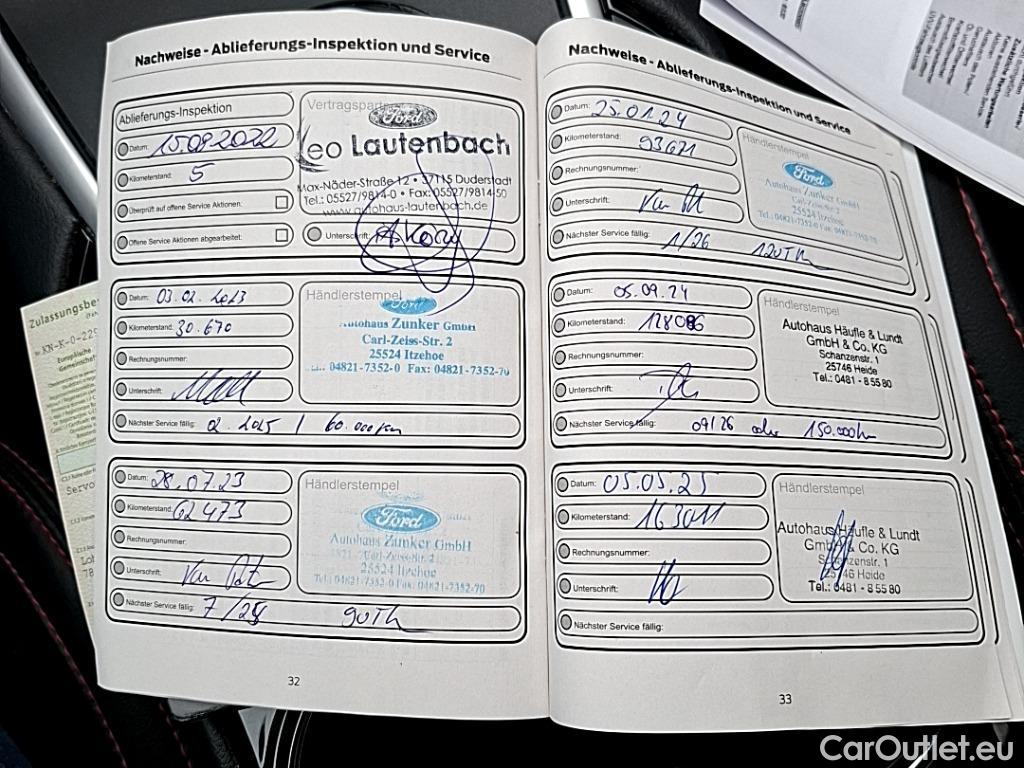 Nachweise - Ablieferungs-Inspektion und Service
Ablieferungs-Inspektion
Datum: 15.09.2022
Kilometerstand: 5
Überprüft auf offene Service Aktionen:
Offene Service Aktionen abgearbeitet:
Ford
Leo Lautenbach
Max-Näder-Straße 12 • 37115 Duderstadt
Tel.: 05527/9814-0 • Fax: 05527/9814-50
www.autohaus-lautenbach.de
Unterschrift:
Datum: 03.02.2023
Kilometerstand: 30.670
Rechnungsnummer:
Unterschrift:
Nächster Service fällig: 02.2025 / 60.000km
Händlerstempel
Ford
Autohaus Zunker GmbH
Carl-Zeiss-Str. 2
25524 Itzehoe
04821-7352-0 Fax: 04821-7352-70
Datum: 28.07.23
Kilometerstand: 62473
Rechnungsnummer:
Unterschrift:
Nächster Service fällig: 7/25 90TKm
Händlerstempel
Ford
Autohaus Zunker GmbH
Carl-Zeiss-Str. 2
25524 Itzehoe
Tel.: 04821-7352-0 Fax: 04821-7352-70
32
Nachweise - Ablieferungs-Inspektion und Service
Datum: 25.01.24
Kilometerstand: 93671
Rechnungsnummer:
Unterschrift:
Nächster Service fällig: 1/26 120TKm
Händlerstempel
Ford
Autohaus Zunker GmbH
Carl-Zeiss-Str. 2
25524 Itzehoe
Tel.: 04821-7352-0 Fax: 04821-7352-70
Datum: 05.09.24
Kilometerstand: 128086
Rechnungsnummer:
Unterschrift:
Nächster Service fällig: 09/26 oder 150.000km
Händlerstempel
Autohaus Häufle & Lundt
GmbH & Co. KG
Schanzenstr. 1
25746 Heide
Tel.: 0481 - 8 55 80
Datum: 05.05.25
Kilometerstand: 163011
Rechnungsnummer:
Unterschrift:
Nächster Service fällig:
Händlerstempel
Autohaus Häufle & Lundt
GmbH & Co. KG
Schanzenstr. 1
25746 Heide
Tel.: 0481 - 8 55 80
33
CarOutlet.eu